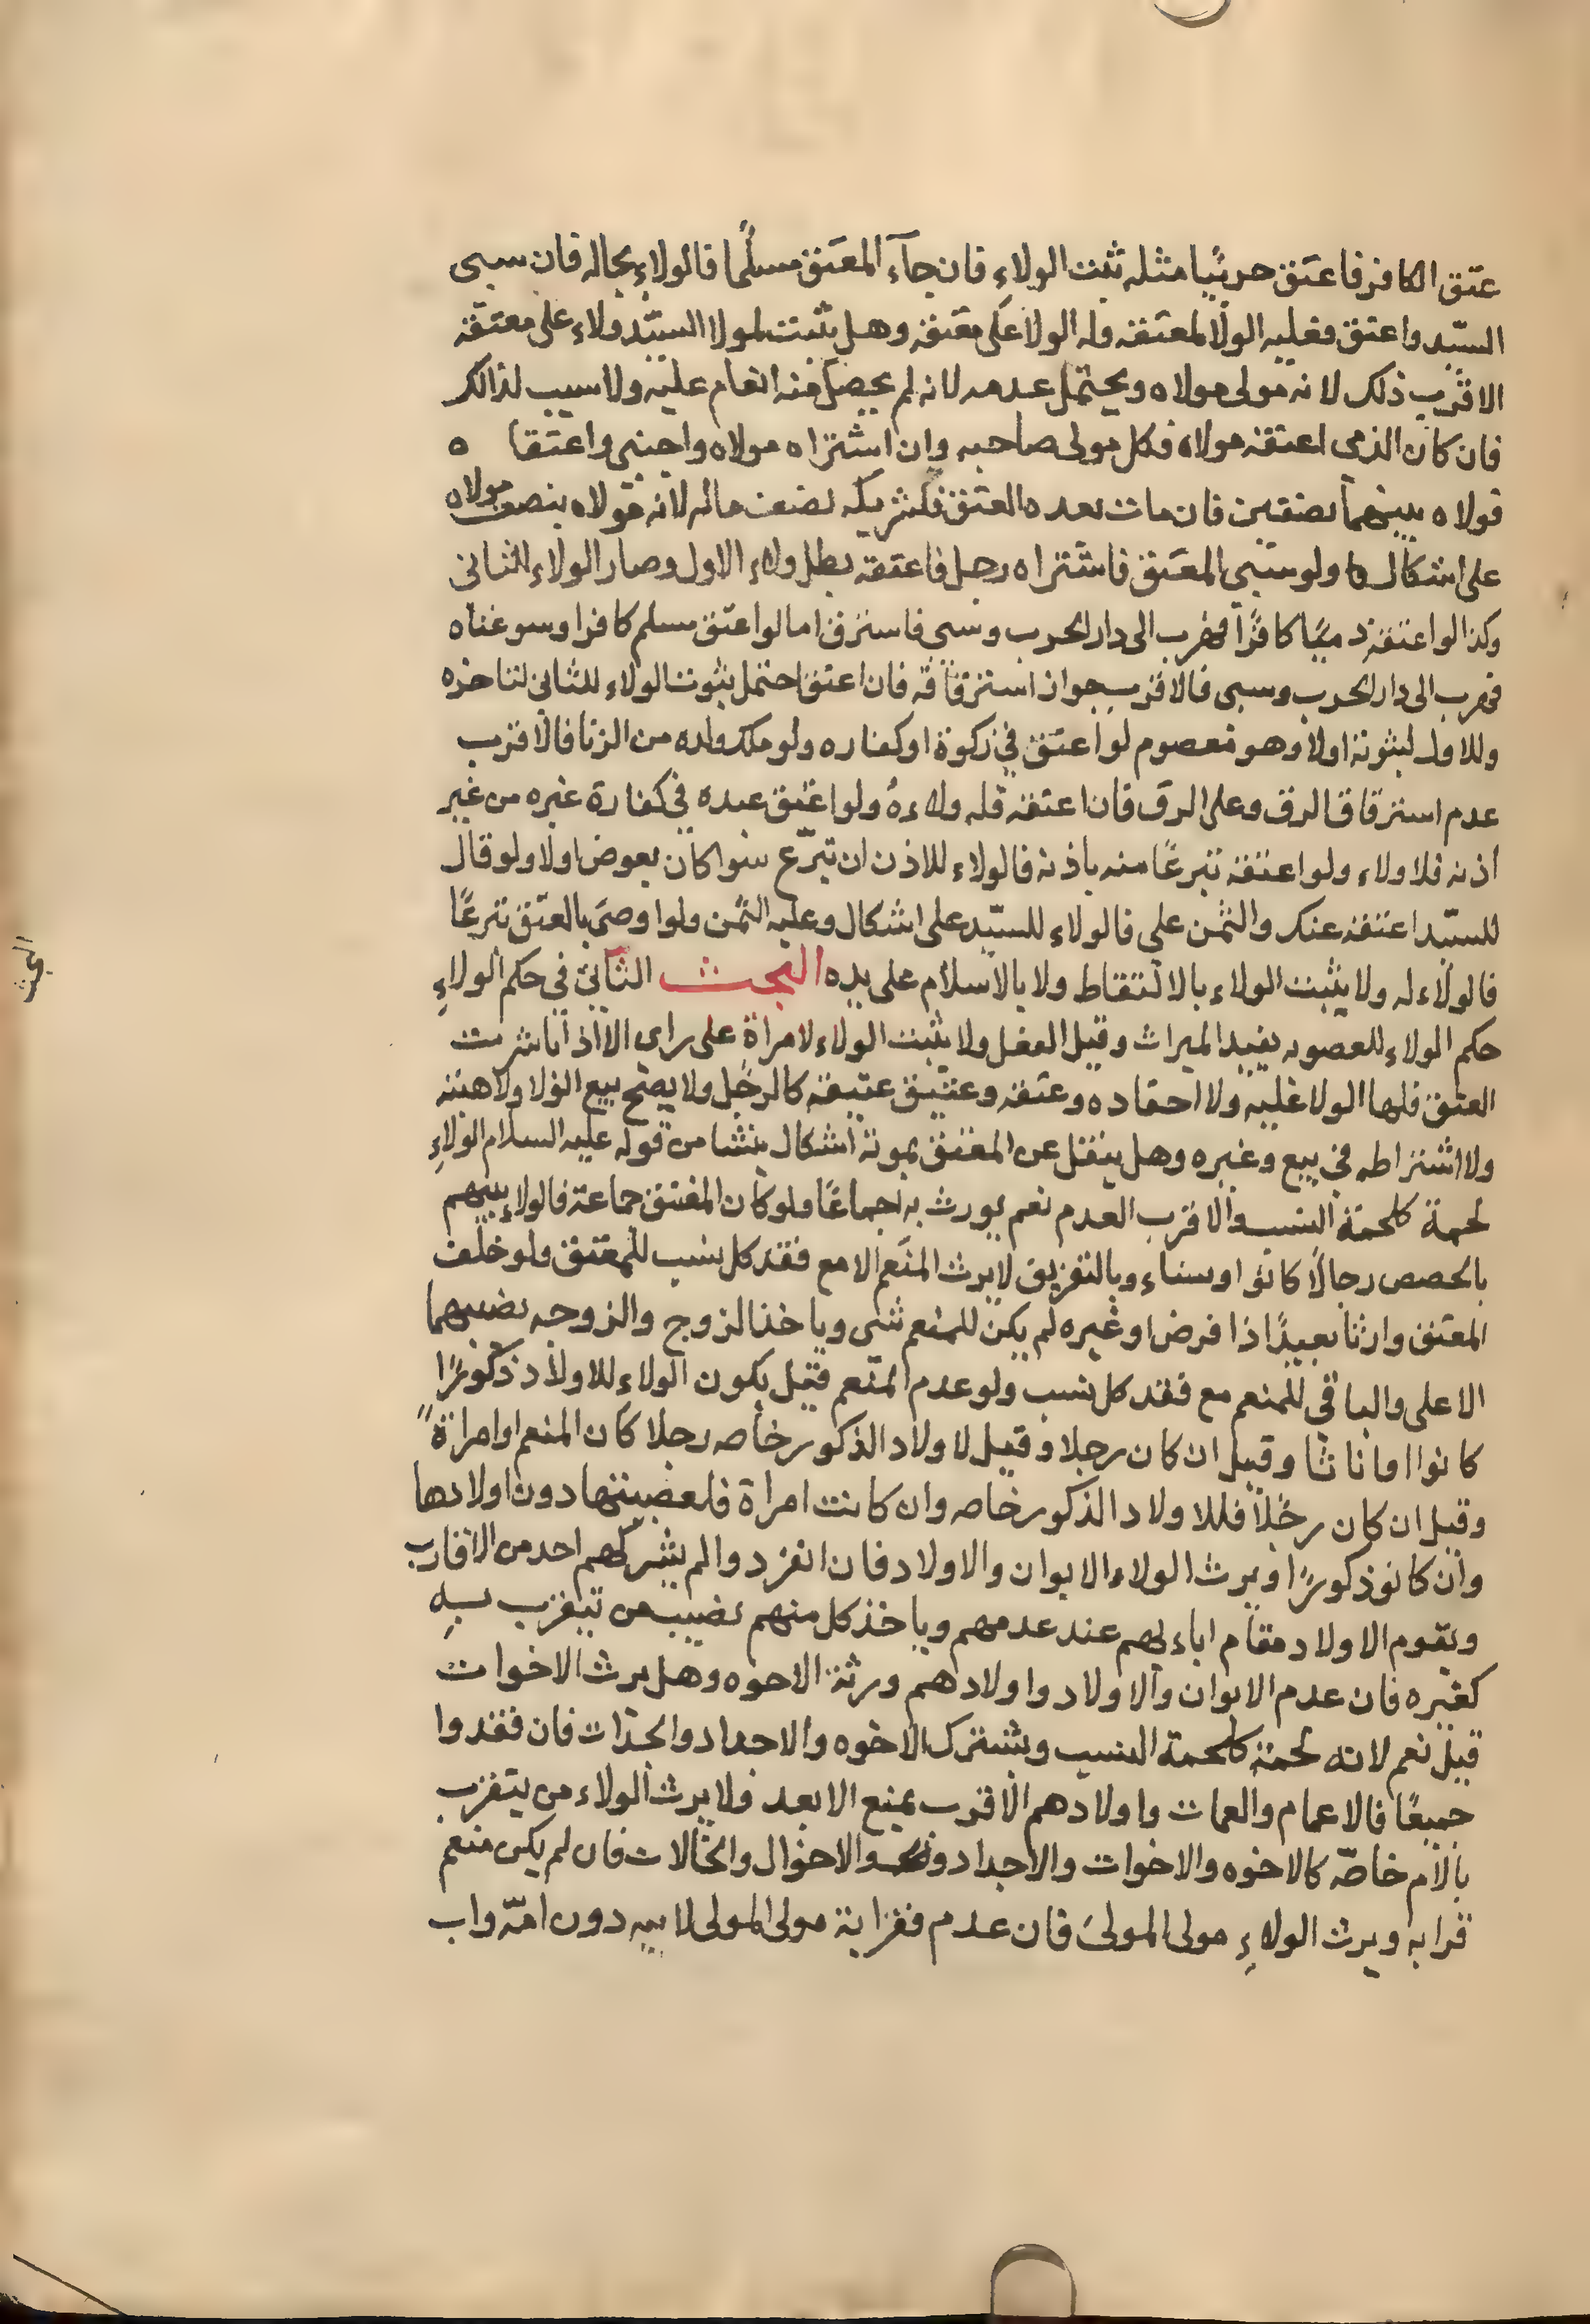 عتق الكافر فاعتق حربيا مثله ثبت الولاء فان جآء المعتق مسلمًا فالولاء بحاله فان سبى
السيّد واعتق فعليه الولا لمعتقه وله الولا على معتقه وهل يثبت لمولا السيّد ولاء على معتقه
الاقرب ذلك لانه مولى مولاه ويحتمل عدمه لانه لم يحصل منه انعام عليه ولا سبب لذالك
فان كان الذى اعتقه مولاه فكل مولى صاحبه وان اشتراه مولاه واجنبى واعتقا ه
فولاه بينهما نصفين فان مات بعده المعتق فلشريكه نصف ماله لانه مولاه بنصف مولاه
على اشكال ولو سبى المعتق فاشتراه رجل فاعتقه بطل ولاء الاول وصار الولاء للثانى
وكذا لو اعتقه ذميًا كافرًا فهرب الى دار الحرب وسبى فاسترق اما لو اعتق مسلم كافرا وسوغناه
فهرب الى دار الحرب وسبى فالاقرب جواز استرقاقه فان اعتق احتمل ثبوت الولاء للثانى لتاخره
وللاول لثبوته اولا وهو معصوم لو اعتق في زكوة او كفاره ولو ملك ولده من الزنا فالاقرب
عدم استرقاق الرق وعلى الرق فان اعتقه فله ولاءهُ ولو اعتق عبده في كفارة غيره من غير
اذنه فلا ولاء ولو اعتقه تبرعًا منه باذنه فالولاء للاذن ان تبرّع سوا كان بعوض اولا ولو قال
للسيّد اعتقه عنك والثمن على فالولاء للسيّد على اشكال وعليه الثمن ولو اوصى بالعتق تبرعًا
فالولاء له ولا يثبت الولاء بالالتقاط ولا بالاسلام على يده البحث الثانى في حكم الولاءِ
البحث
حكم الولاء للعصوبه يفيد الميراث وقيل العقل ولا يثبت الولاء لامراة على راى الا اذا باشرت
العتق فلها الولا عليه ولا احقاده وعتقه وعتيق عتيقه كالرجل ولا يصح بيع الولا ولا هبته
ولا اشتراطه في بيع وغيره وهل ينقل عن المعتق بموته اشكال ينشا من قوله عليه السلام الولاءِ
لحمة كلحمة النسب والاقرب العدم نعم يورث به اجماعًا ولو كان المعتق جماعة فالولاء بينهم
بالحصص رجالًا كانو او نساء وبالتفريق لا يرث المنعم الا مع فقد كل نسب للمعتق ولو خلف
المعتق وارثا بعيدًا ذا فرض او غيره لم يكن للمنعم شى وياخذ الزوج والزوجه نصيبهما
الاعلى والباقي للمنعم مع فقد كل نسب ولو عدم المنعم فقيل يكون الولاء للاولاد ذكورًا
كانوا او اناثا وقيل ان كان رجلا وقيل لاولاد الذكور خاصه رجلا كان المنعم او امراةً
وقيل ان كان رجلًا فللاولاد الذكور خاصه وان كانت امراة فلعصبتها دون اولادها
وان كانو ذكورًا ويرث الولاء الابوان والاولاد فان انفردوا لم يشركهم احد من الاقارب
ويقوم الاولاد مقام اباءهم عند عدمهم وياخذ كل منهم نصيب من تيقرب بهِ
كغيره فان عدم الابوان والاولاد واولادهم ورثة الاخوه وهل يرث الاخوات
قيل نعم لانه لحمة كلحمة النسب ويشترك الاخوه والاجداد والجدات فان فقدوا
جميعًا فالاعمام والعمات واولادهم الاقرب يمنع الابعد ولا يرث الولاء من يتقرب
بالام خاصّه كالاخوه والاخوات والاجداد والاخوال والخالات فان لم يكن منعم
قرابه ويرث الولاءِ مولى المولىَ فان عدم فقرابة مولى المولى لابيه دون امّه واب